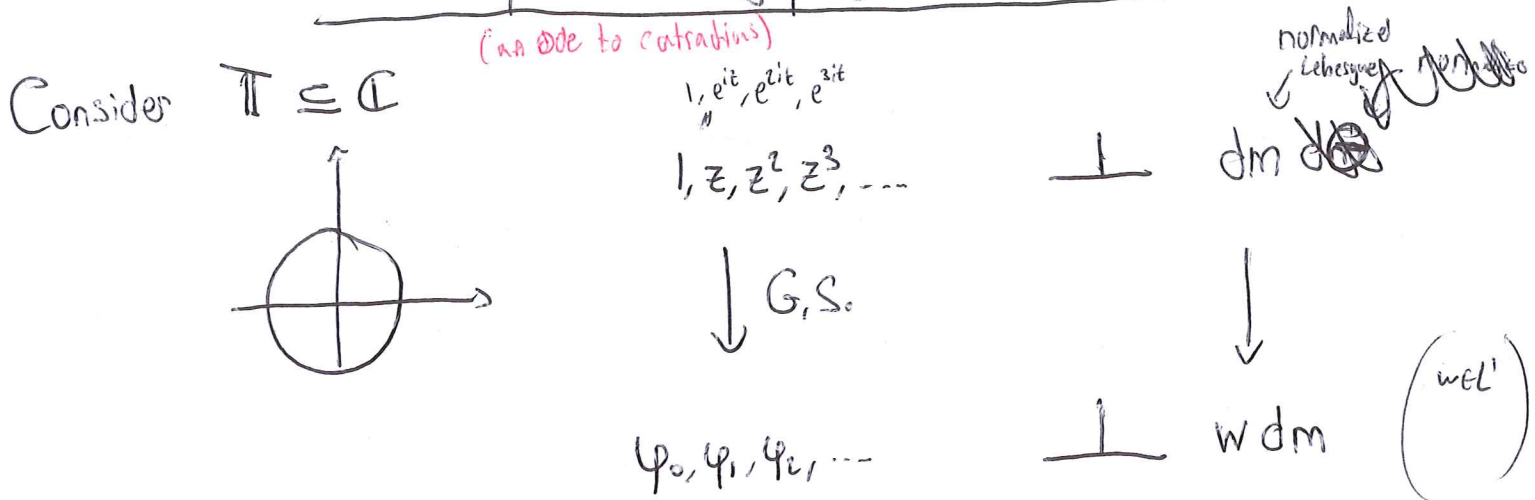 (an ode to contractions)
normalized
Lebesgue
Consider 𝕋 ⊆ ℂ
1, e^{it}, e^{2it}, e^{3it}
1, z, z², z³, ....
⊥ dm
G.S.
φ₀, φ₁, φ₂, ...
⊥ w dm
(w∈L¹)